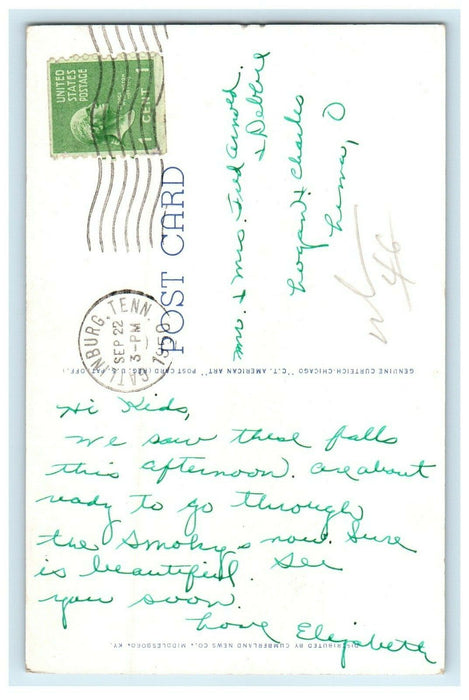 UNITED
STATES
POSTAGE
1 CENT 1
GATLINBURG, TENN.
SEP 22
3-PM
1950
POST CARD
Mr. & Mrs. Fred Arnold
& Debbie
Logan & Charles
Lima, O
46
GENUINE CURTEICH-CHICAGO "C.T. AMERICAN ART" POST CARD (REG. U.S. PAT. OFF.)
Hi Kids,
We saw these falls
this afternoon. are about
ready to go through
the Smokys now. Sure
is beautiful. See
you soon.
Love Elizabeth
DISTRIBUTED BY CUMBERLAND NEWS CO., MIDDLESBORO, KY.